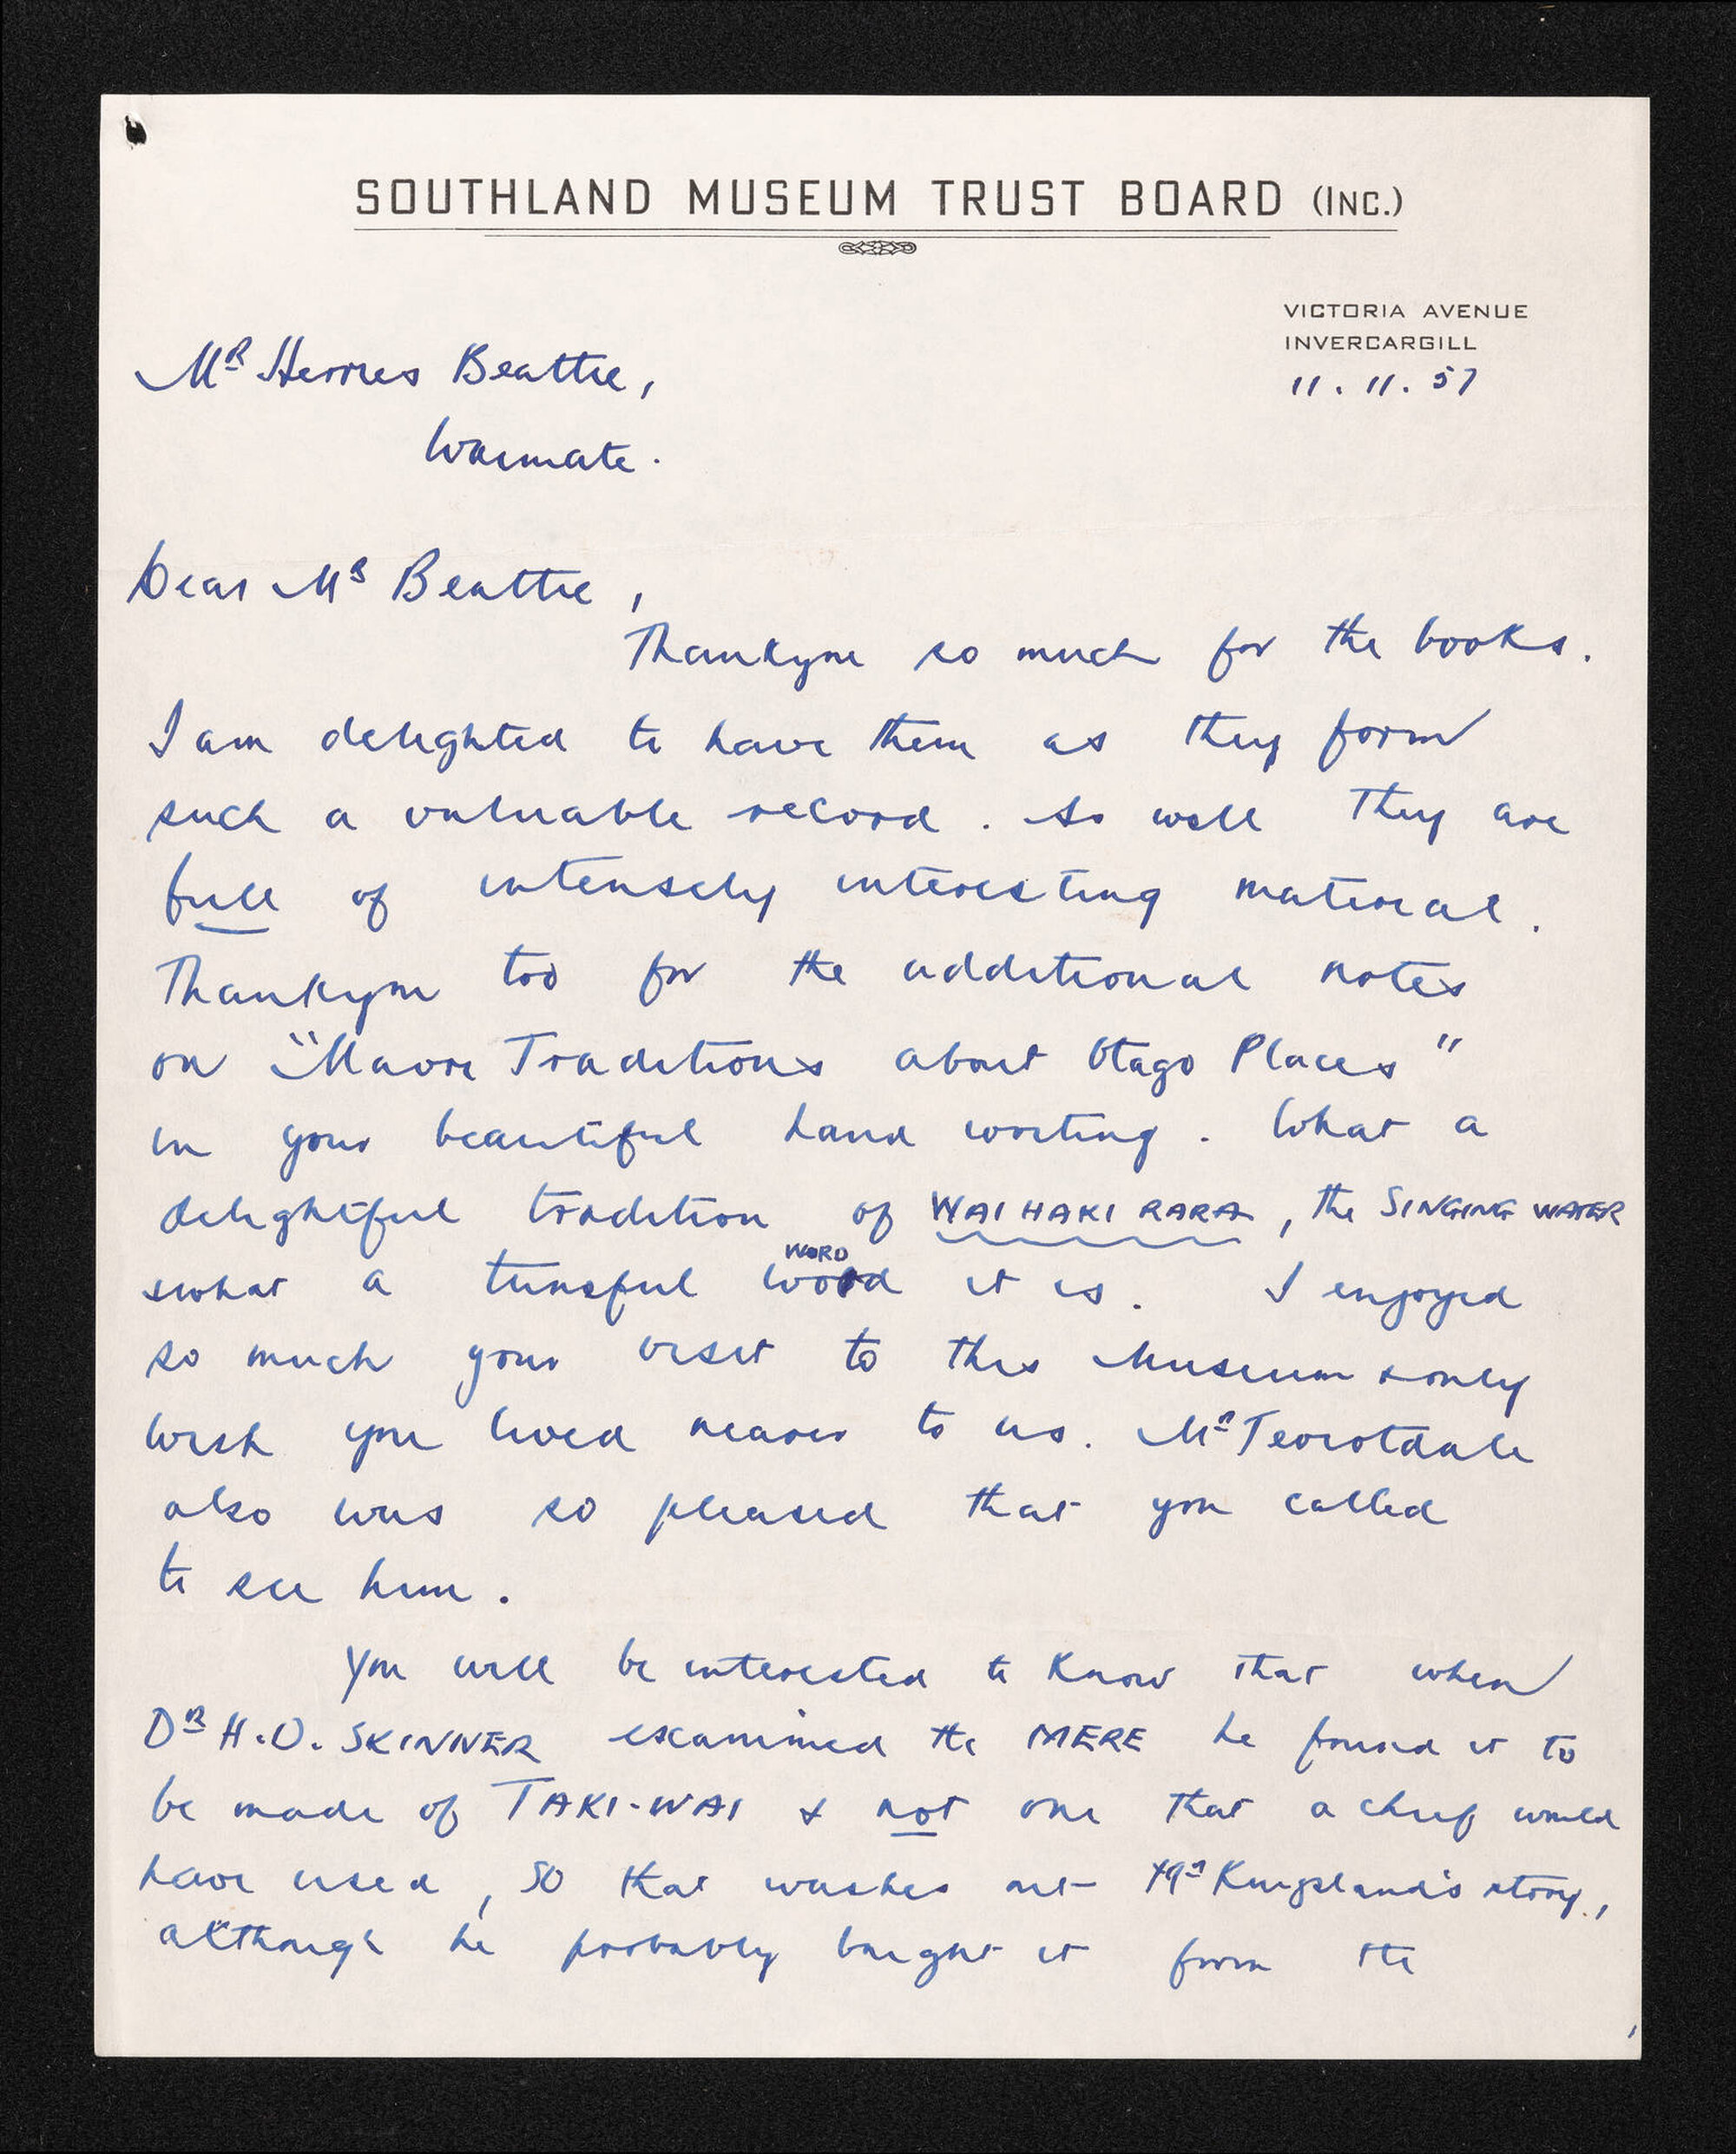 SOUTHLAND MUSEUM TRUST BOARD (INC.)
VICTORIA AVENUE
INVERCARGILL
11. 11. 57
Mr Herries Beattie,
Waimate.
Dear Mr Beattie,
Thankyou so much for the books.
I am delighted to have them as they form
such a valuable record. As well they are
full of intensely interesting material.
Thankyou too for the additional notes
on "Maori Traditions about Otago Places"
in your beautiful hand writing. What a
delightful tradition of WAI HAKI RARA, the SINGING WATER
& what a tuneful word WORD it is. I enjoyed
so much your visit to this Museum & only
wish you lived nearer to us. Mr Teviotdale
also was so pleased that you called
to see him.
You will be interested to know that when
Dr H.D. SKINNER examined the MERE he found it to
be made of TAKI-WAI & not one that a chief would
have used, so that washes out Kingsland's story,
although he probably bought it from the